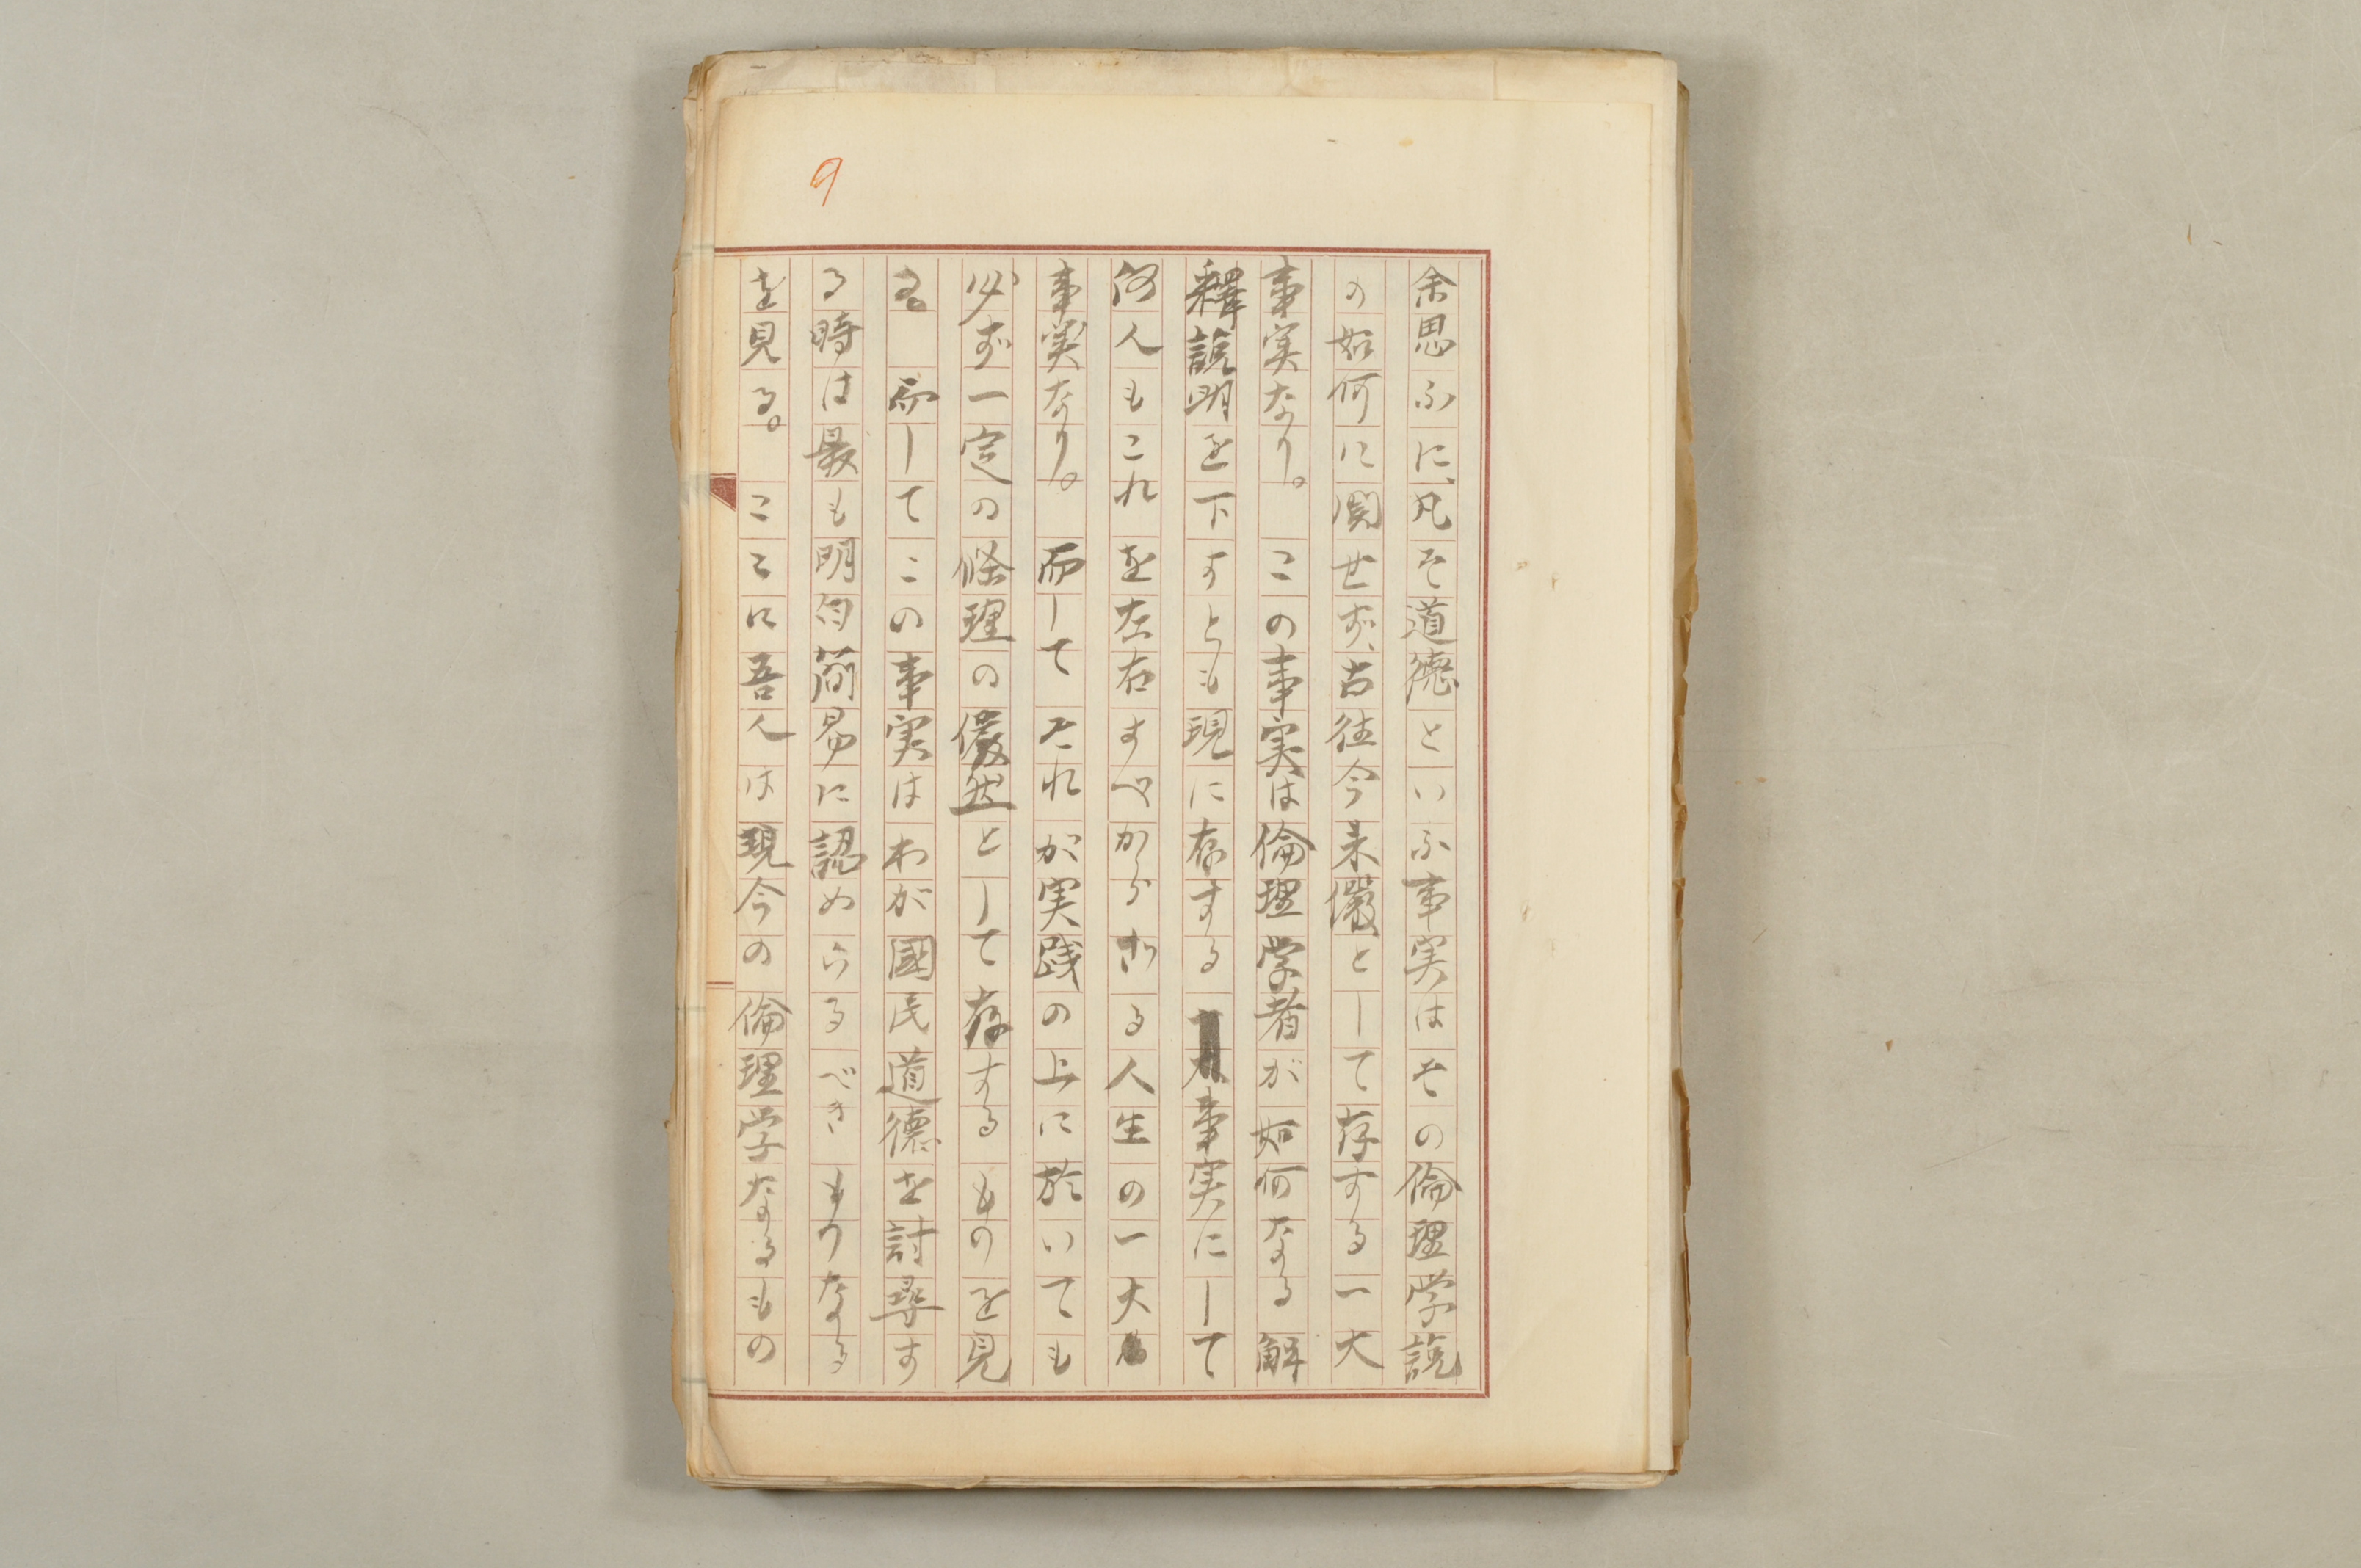 9
余思ふに、凡そ道徳といふ事実はその倫理学説
の如何に関せず、古往今来儼として存する一大
事実なり。この事実は倫理学者が如何なる解
釋説明を下すとも現に存する事実にして
何人もこれを左右すべからざる人生の一大
事実なり。而してそれが実践の上に於いても
必ず一定の條理の儼然として存するものを見
る。而してこの事実はわが國民道徳を討尋す
る時は最も明白簡易に認めらるべきものなる
を見る。ここに吾人は現今の倫理学なるもの